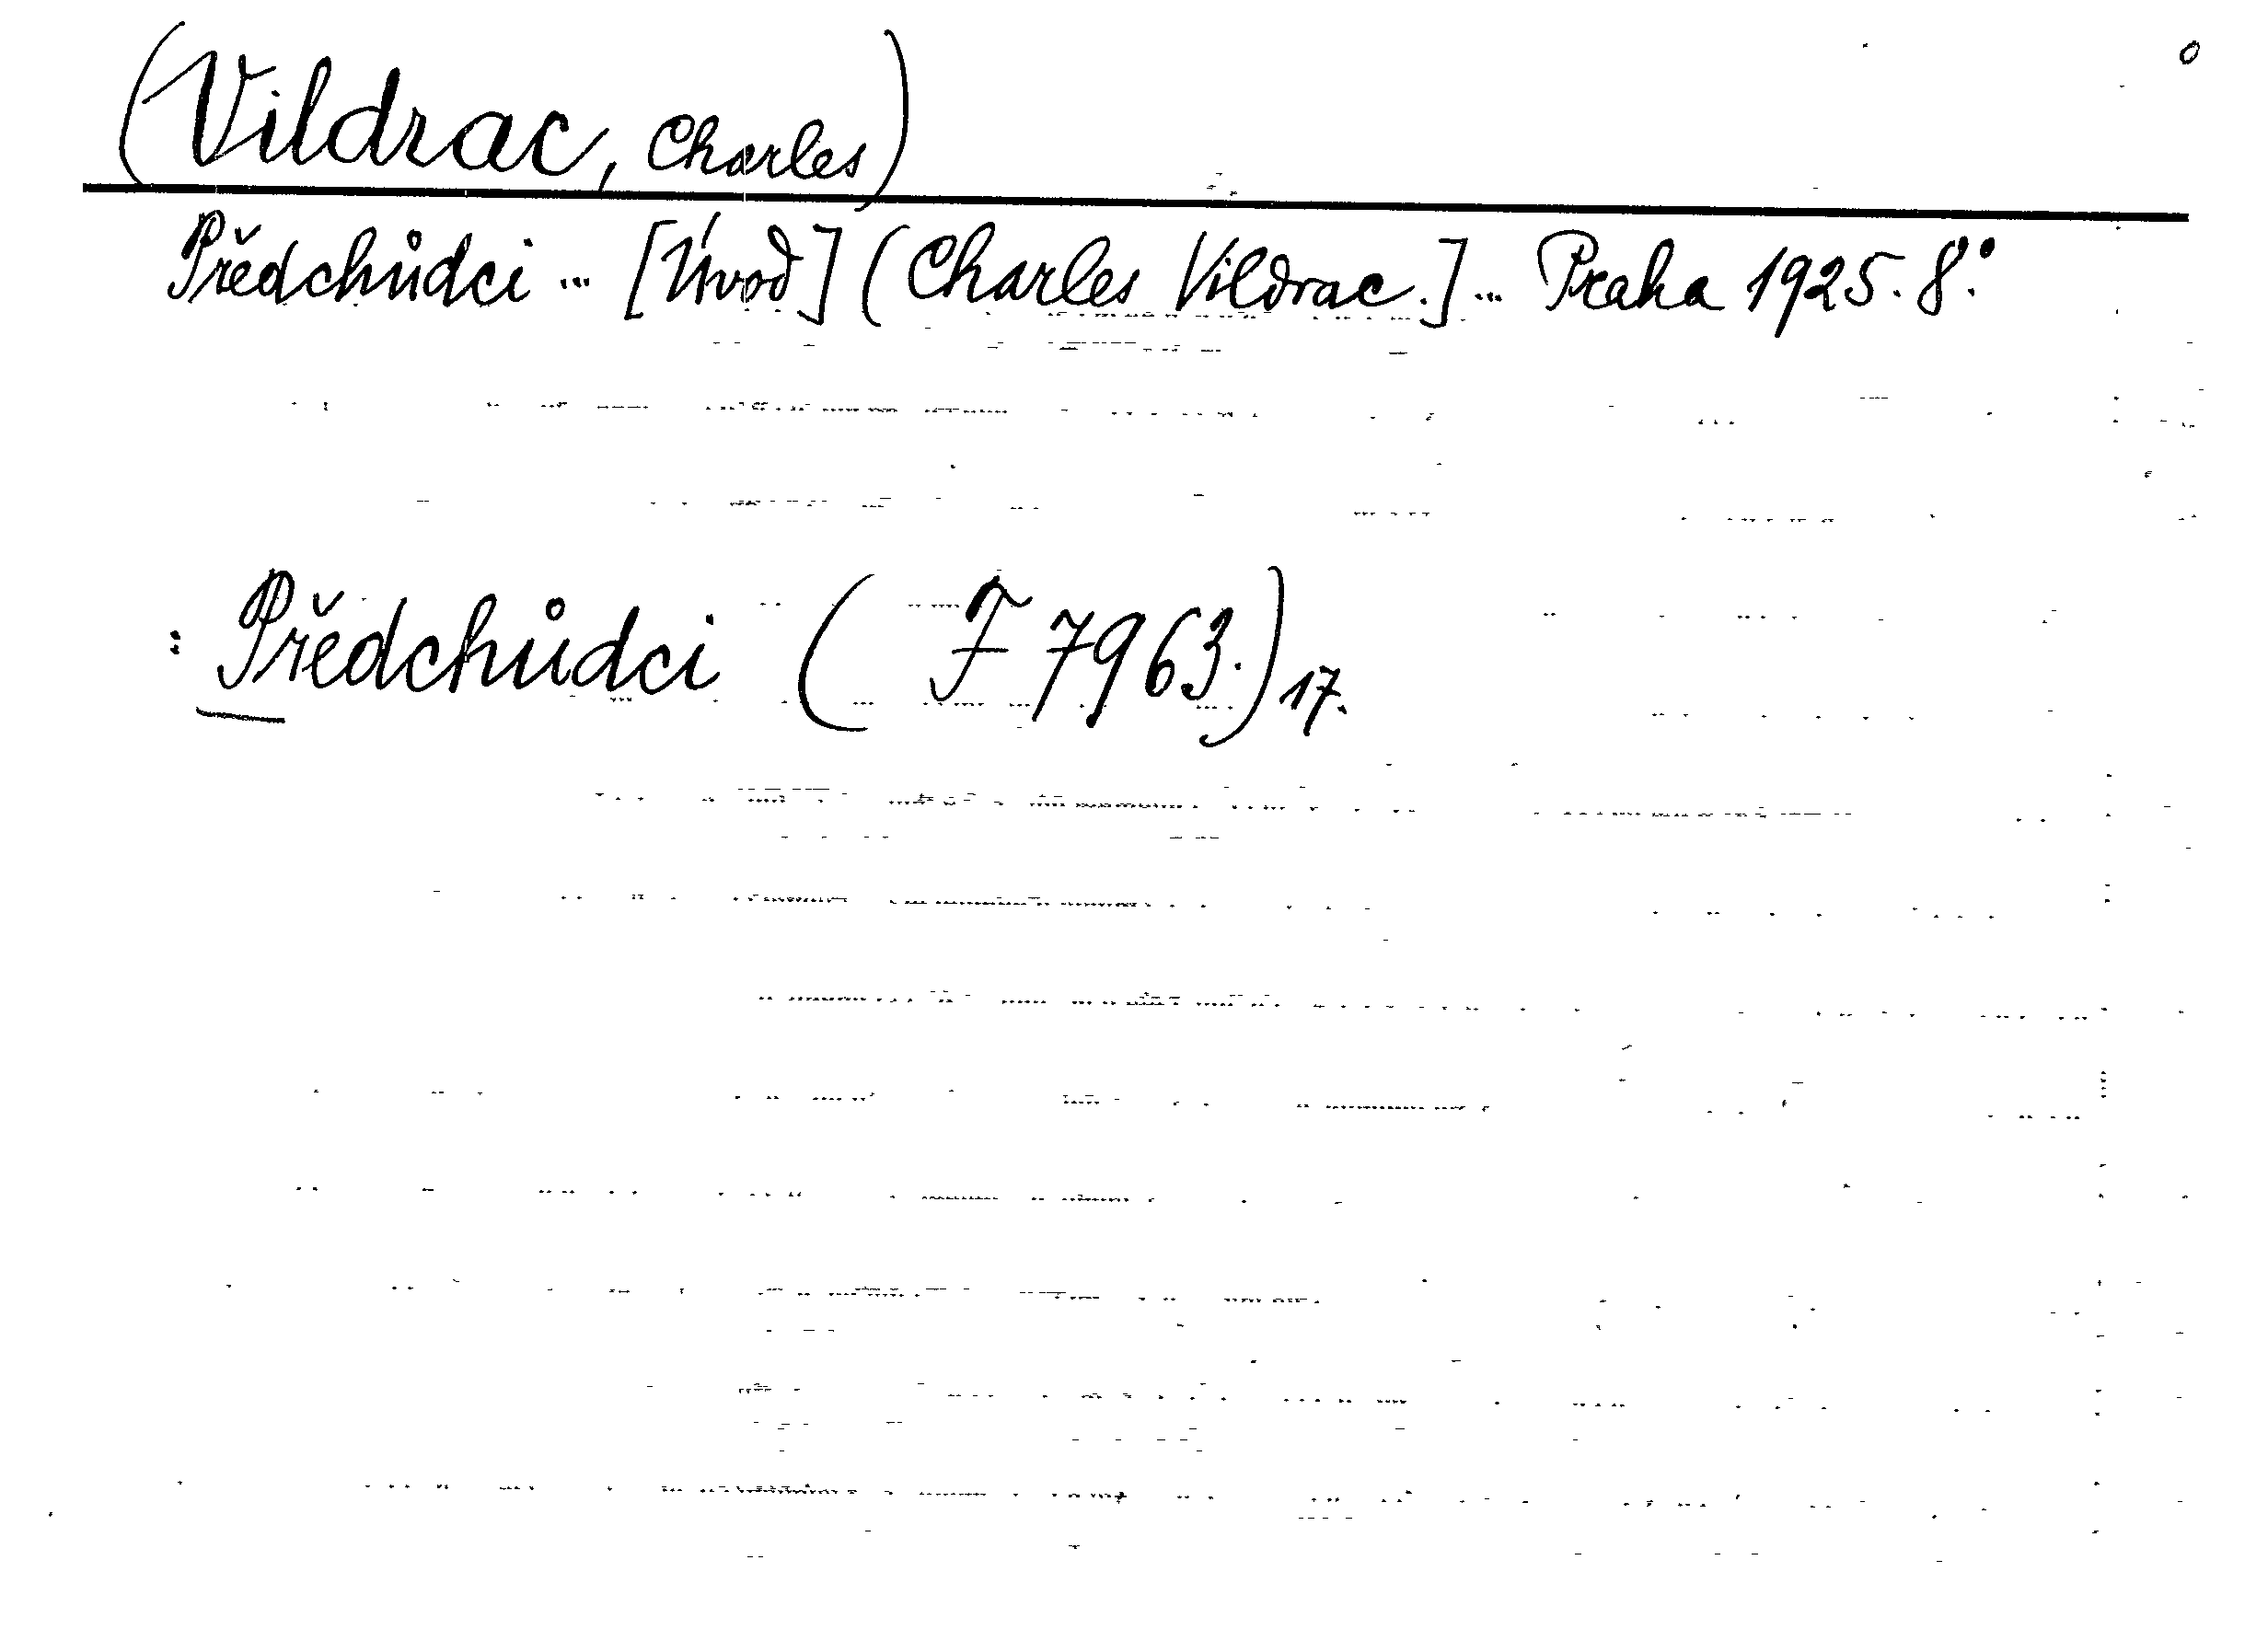 (Vildrac, Charles)
Předchůdci ... [Úvod] (Charles Vildrac.] ... Praha 1925. 8°.
: Předchůdci ( F 7963.) 17.